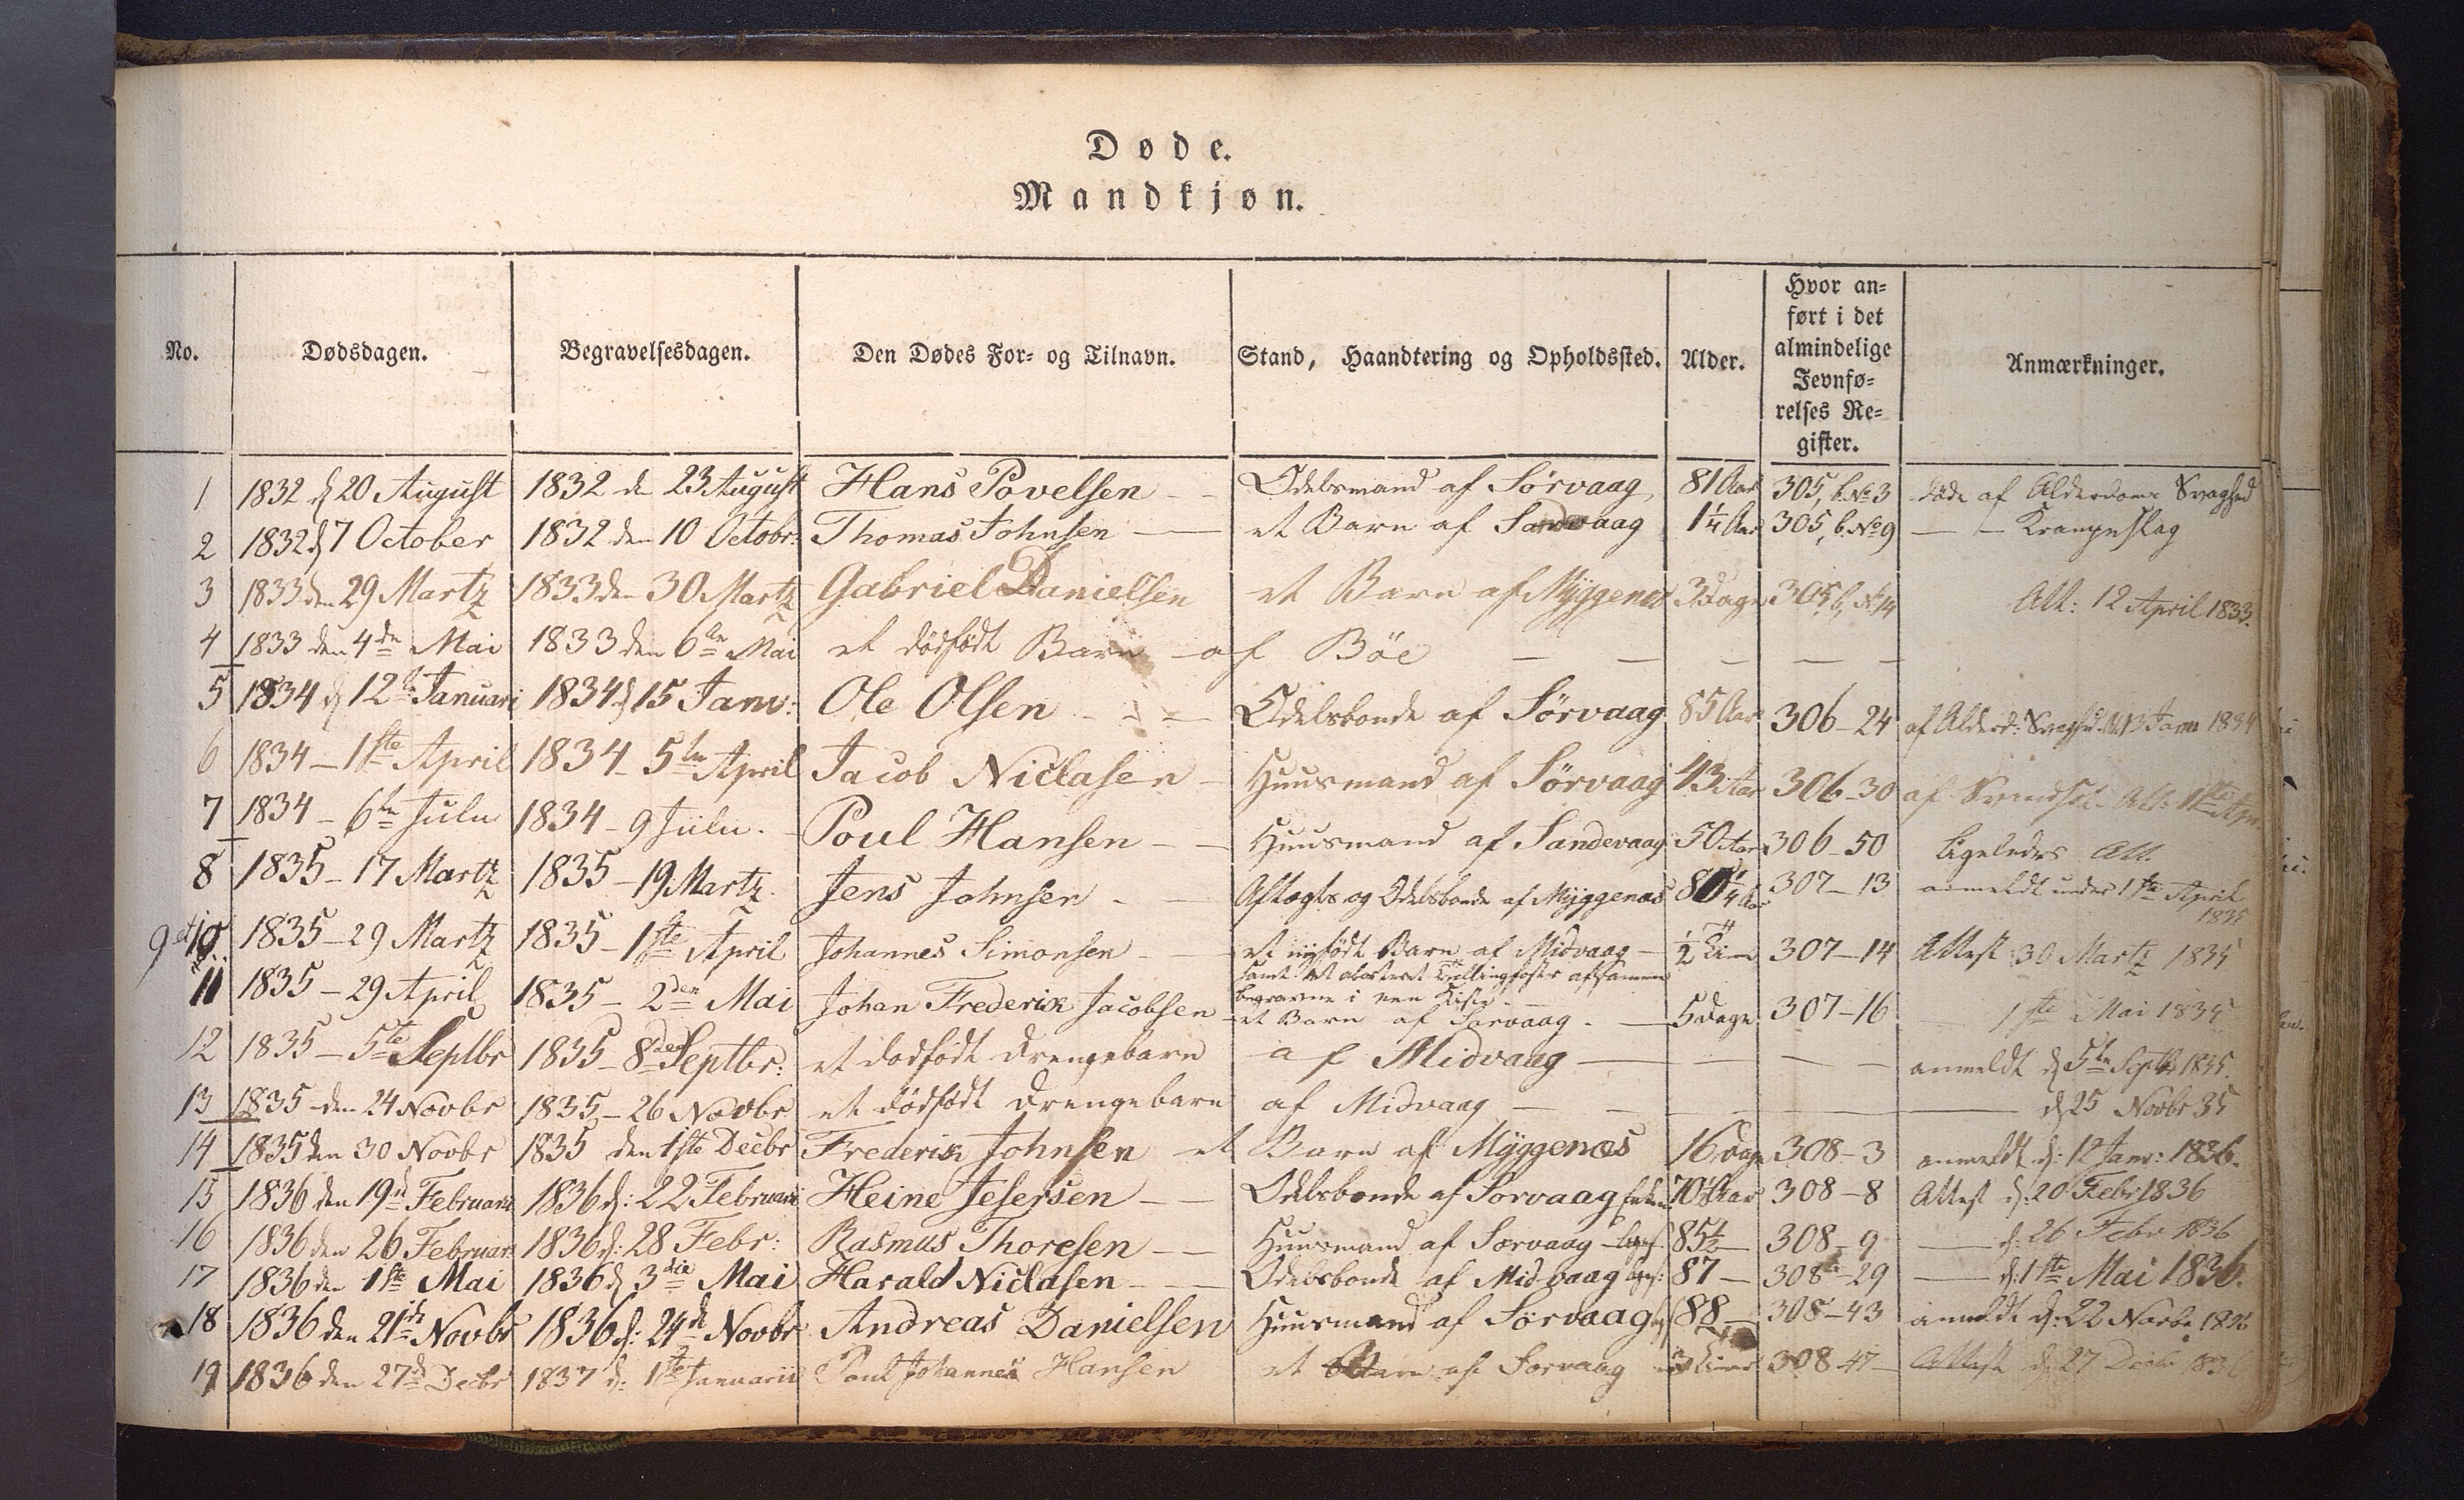 Døde.
Mandkjøn.
No. Dødsdagen. Begravelsesdagen. Den Dødes For- og Tilnavn. Stand, Haandtering og Opholdssted. Alder. Hvor an-
ført i det
almindelige
Jevnfø-
relses Re-
gister. Anmærkninger.
1 1832 d 20 August 1832 den 23 August Hans Povelsen Odelsmand af Sörvaag 81 Aar 305, b. No 3 döde af Alderdoms Svaghed
2 1832 d 7 October 1832 den 10 Octobr: Thomas Johnsen et Barn af Sandvaag 1¼ Aar 305, b. No 9 Krampeslag
3 1833 den 29 Martz 1833 den 30 Martz Gabriel Danielsen et Barn af Myggenæs 3 Dage 305 b, No 14 Att: 12 April 1833.
4 1833 den 4de Mai 1833 den 6te Mai et dödfödt Barn af Böe
5 1834 d 12te Januari 1834 d 15 Janv: Ole Olsen Odelsbonde af Sörvaag 85 Aar 306-24 af Alderd: Svaghed. 13 Janv 1834
6 1834 - 1ste April 1834 - 5te April Jacob Niclasen Huusmand af Sörvaag 43 Aar 306-30 af Att: 1ste Apr
7 1834 - 6te Julii 1834 - 9 Julii. Poul Hansen Huusmand af Sandevaag 50 Aar 306-50 ligeledes Att.
8 1835 - 17 Martz 1835 - 19 Martz. Jens Johnsen Aftægts og Odelsbonde af Myggenæs 307-13 anmeldt under 1ste April
1835
9 et 10 1835 - 29 Martz 1835 - 1ste April Johannes Simonsen et nyfödt Barn af Midvaag ½ Time 307-14 Attest 30 Martz 1835
samt et Tvillingfoster
begravne i een Kiste
11 1835 - 29 April 1835 - 2den Mai Johan Frederik Jacobsen et Barn af Sorvaag. 5 Dage 307-16 1ste Mai 1835
12 1835 - 5te Septbr 1835 - 8de Septbr: et dödfödt Drengebarn af Midvaag anmeldt d 5te Septb 1835.
13 1835 den 24 Novbr 1835 - 26 Novbr et dödfödt Drengebarn af Midvaag d 25 Novbr 35
14 1835 den 30 Novbr 1835 den 1ste Decbr Frederik Johnsen et Barn af Myggenæs 16 Dage 308-3 anmeldt d: 12 Janv: 1836.
15 1836 den 19de Februarii 1836 d: 22 Februarii Heine Jesersen Odelsbonde af Sorvaag 70 Aar 308-8 Attest d: 20 Febr 1836
16 1836 den 26 Februar 1836 d: 28 Febr: Rasmus Thoresen Huusmand af Sorvaag 85½ 308-9 d: 26 Febr 1836
17 1836 den 1ste Mai 1836 d 3die Mai Harald Niclasen Odelsbonde af Midvaag 87 308-29 d: 1ste Mai 1836.
18 1836 den 21de Novbr 1836 d: 24de Novbr Andreas Danielsen Huusmand af Sörvaag 88 308-43 anmeldt d: 22 Novbr 1836
19 1836 den 27de Decbr 1837 d: 1ste Januarii Poul Johannes Hansen et Barn af Sorvaag 308-47 Attest d 27 Decbr